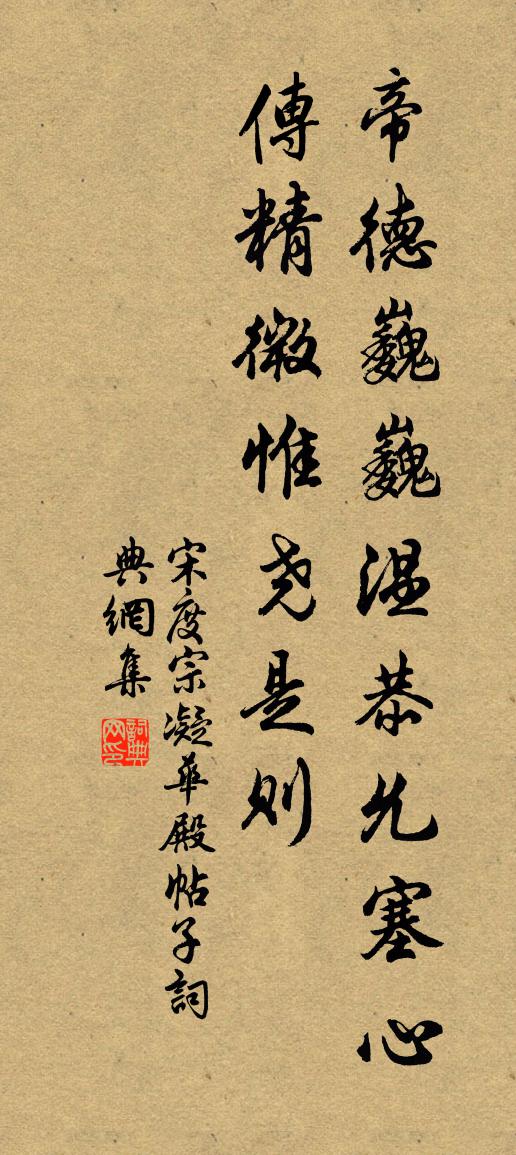 帝德巍巍温恭允塞心
傳精微惟尧是则
宋度宗凝華殿帖子詞
典網集
詞典網印